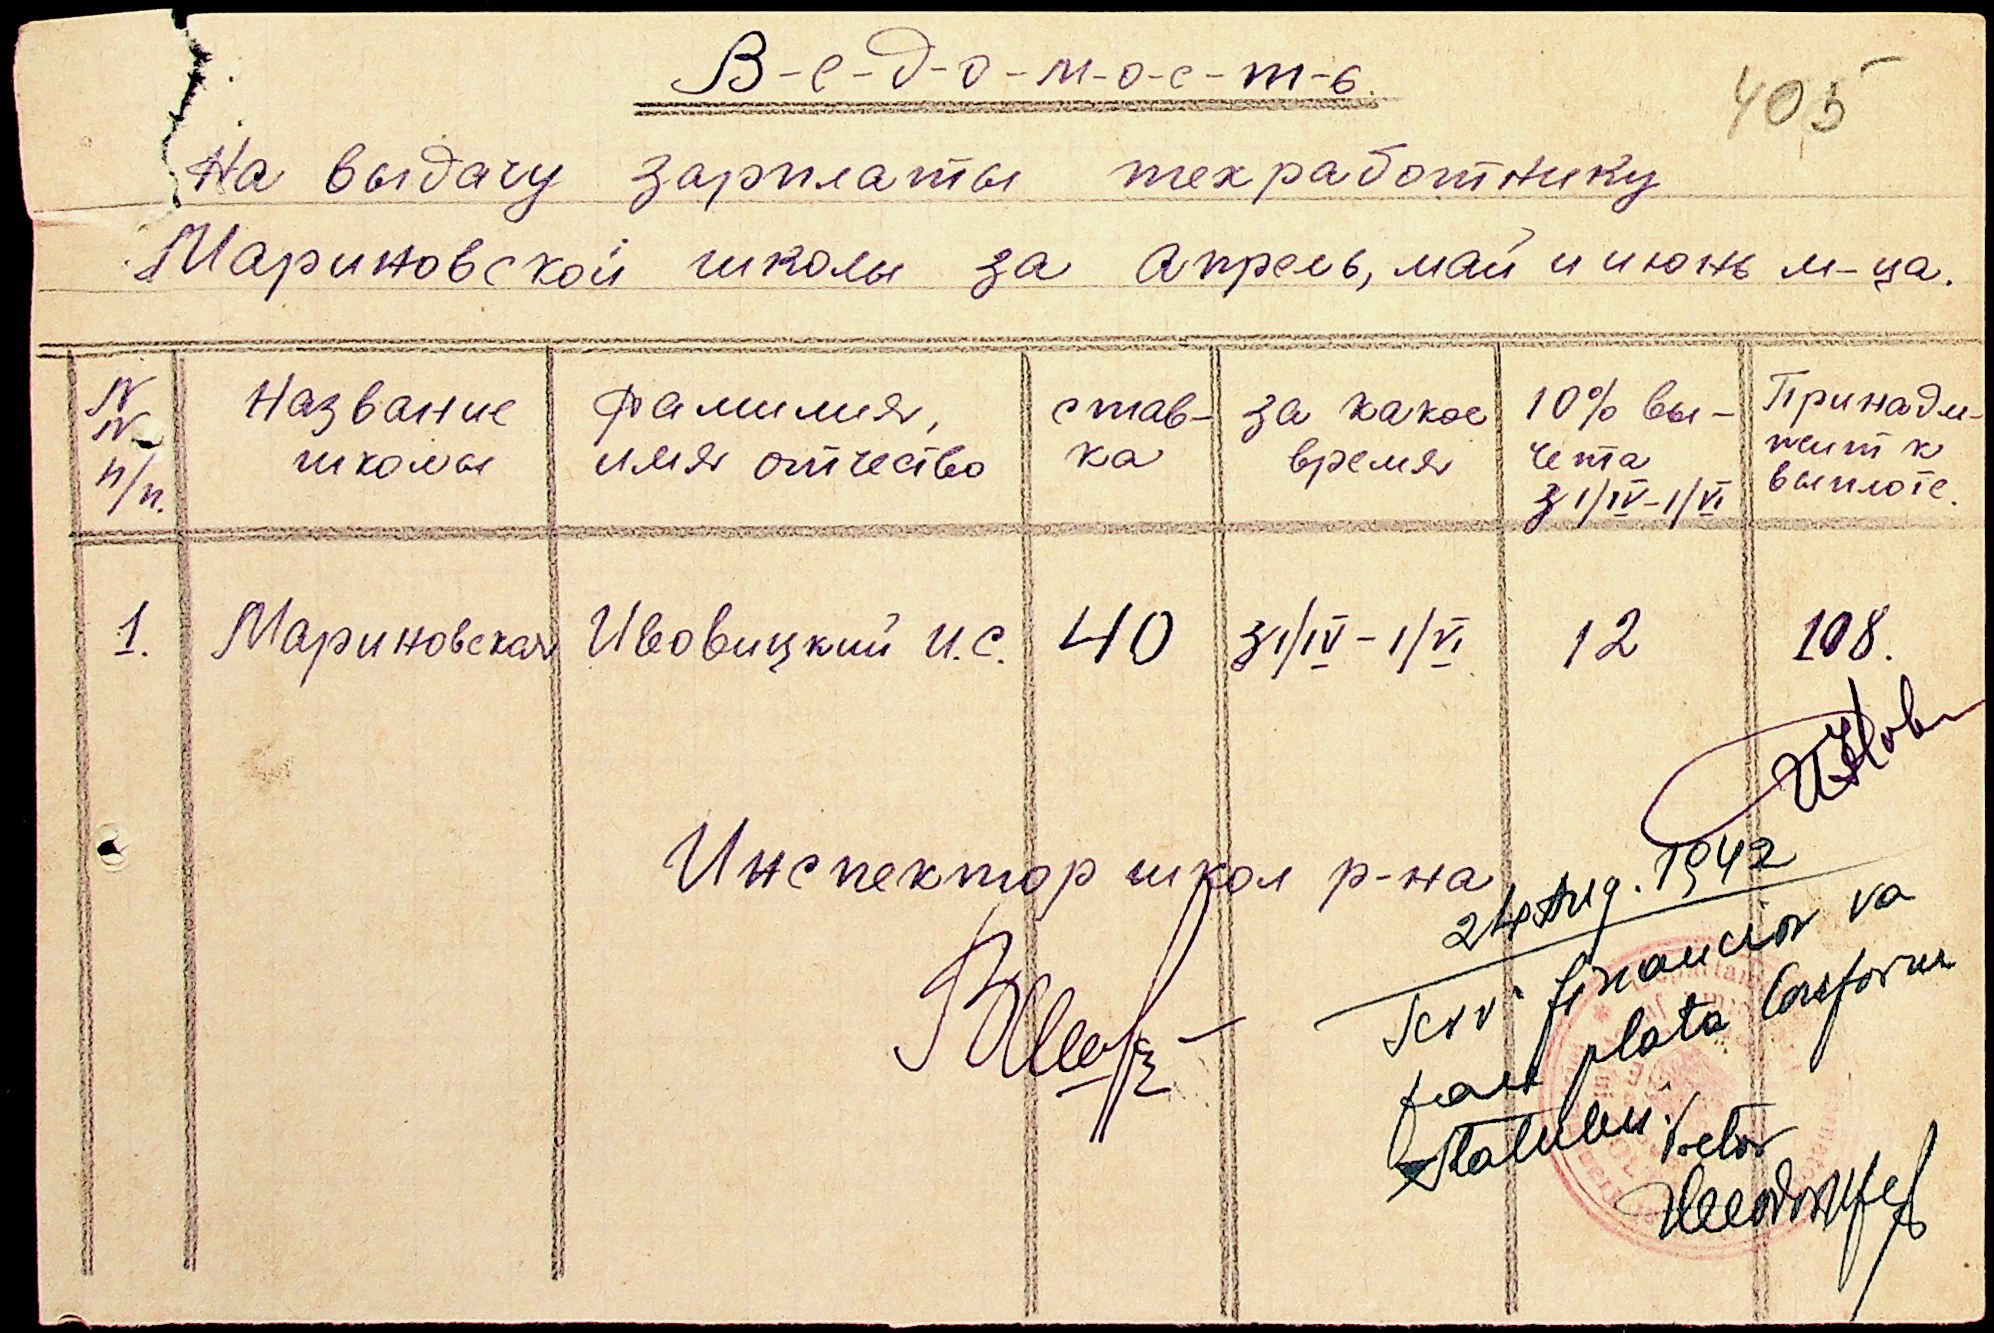 В-е-д-о-м-о-с-т-ь.
405
На выдачу зарплаты техработнику
Мариновской школы за апрель, май и июнь м-ца.
N N п/п. Название школы Фамилия, имя отчество ставка за какое время 10% вычета з 1/IV-1/VI Принадлежит к выплоте.
1. Мариновская Ивовицкий И.С. 40 з 1/IV - 1/VI 12 108.
Инспектор школ р-на
24 Aug. 1942
Serv. financiar va
face plata conform
statului.
Pretor